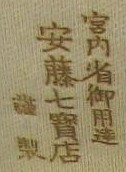 宮内省御用達
安藤七寳店
謹製